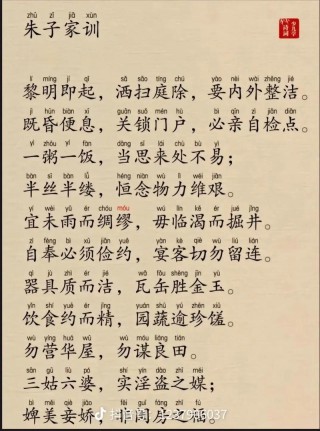 zhū zǐ jiā xùn
朱子家训
lí míng jí qǐ sǎ sǎo tíng chú yào nèi wài zhěng jié
黎明即起，洒扫庭除，要内外整洁。
jì hūn biàn xī guān suǒ mén hù bì qīn zì jiǎn diǎn
既昏便息，关锁门户，必亲自检点。
yì zhōu yí fàn dāng sī lái chù bú yì
一粥一饭，当思来处不易；
bàn sī bàn lǚ héng niàn wù lì wéi jiān
半丝半缕，恒念物力维艰。
yí wèi yǔ ér chóu móu wú lín kě ér jué jǐng
宜未雨而绸缪，毋临渴而掘井。
zì fèng bì xū jiǎn yuē yàn kè qiè wù liú lián
自奉必须俭约，宴客切勿留连。
qì jù zhì ér jié wǎ fǒu shèng jīn yù
器具质而洁，瓦缶胜金玉。
yǐn shí yuē ér jīng yuán shū yù zhēn xiū
饮食约而精，园蔬逾珍馐。
wù yíng huá wū wù móu liáng tián
勿营华屋，勿谋良田。
sān gū liù pó shí yín dào zhī méi
三姑六婆，实淫盗之媒；
bì měi qiè jiāo fēi guī fáng zhī fú
婢美妾娇，非闺房之福。